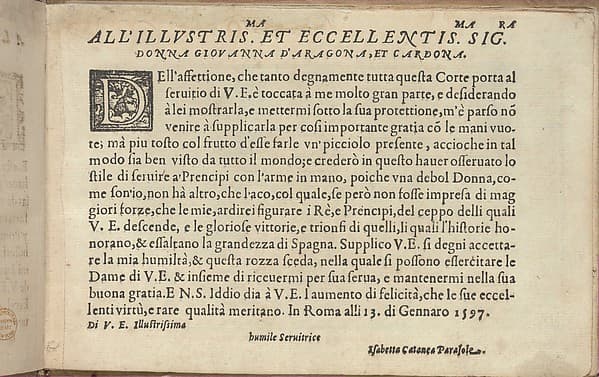 ALL'ILLVSTRIS.MA ET ECCELLENTIS.MA SIG.RA
DONNA GIOVANNA D'ARAGONA, ET CARDONA.
DEll'affettione, che tanto degnamente tutta questa Corte porta al
seruitio di V.E. è toccata à me molto gran parte, e desiderando
à lei mostrarla, e mettermi sotto la sua protettione, m'è parso nõ
venire à supplicarla per così importante gratia cõ le mani vuo-
te; mà piu tosto col frutto d'esse farle vn'picciolo presente, accioche in tal
modo sia ben visto da tutto il mondo; e crederò in questo hauer osseruato lo
stile di seruire a'Prencipi con l'arme in mano, poiche vna debol Donna, co-
me son'io, non hà altro, che l'aco, col quale, se però non fosse impresa di mag
giori forze, che le mie, ardirei figurare i Rè, e Prencipi, del ceppo delli quali
V. E. descende, e le gloriose vittorie, e trionfi di quelli, li quali l'historie ho-
norano, & essaltano la grandezza di Spagna. Supplico V.E. si degni accetta-
re la mia humiltà, & questa rozza sceda, nella quale si possono essercitare le
Dame di V.E. & insieme di riceuermi per sua serua, e mantenermi nella sua
buona gratia. E N.S. Iddio dia à V.E. l'aumento di felicità, che le sue eccel-
lenti virtù, e rare qualità meritano. In Roma alli 13. di Gennaro 1597.
Di V. E. Illustrissima
humile Seruitrice
Isabetta Catanea Parasole.